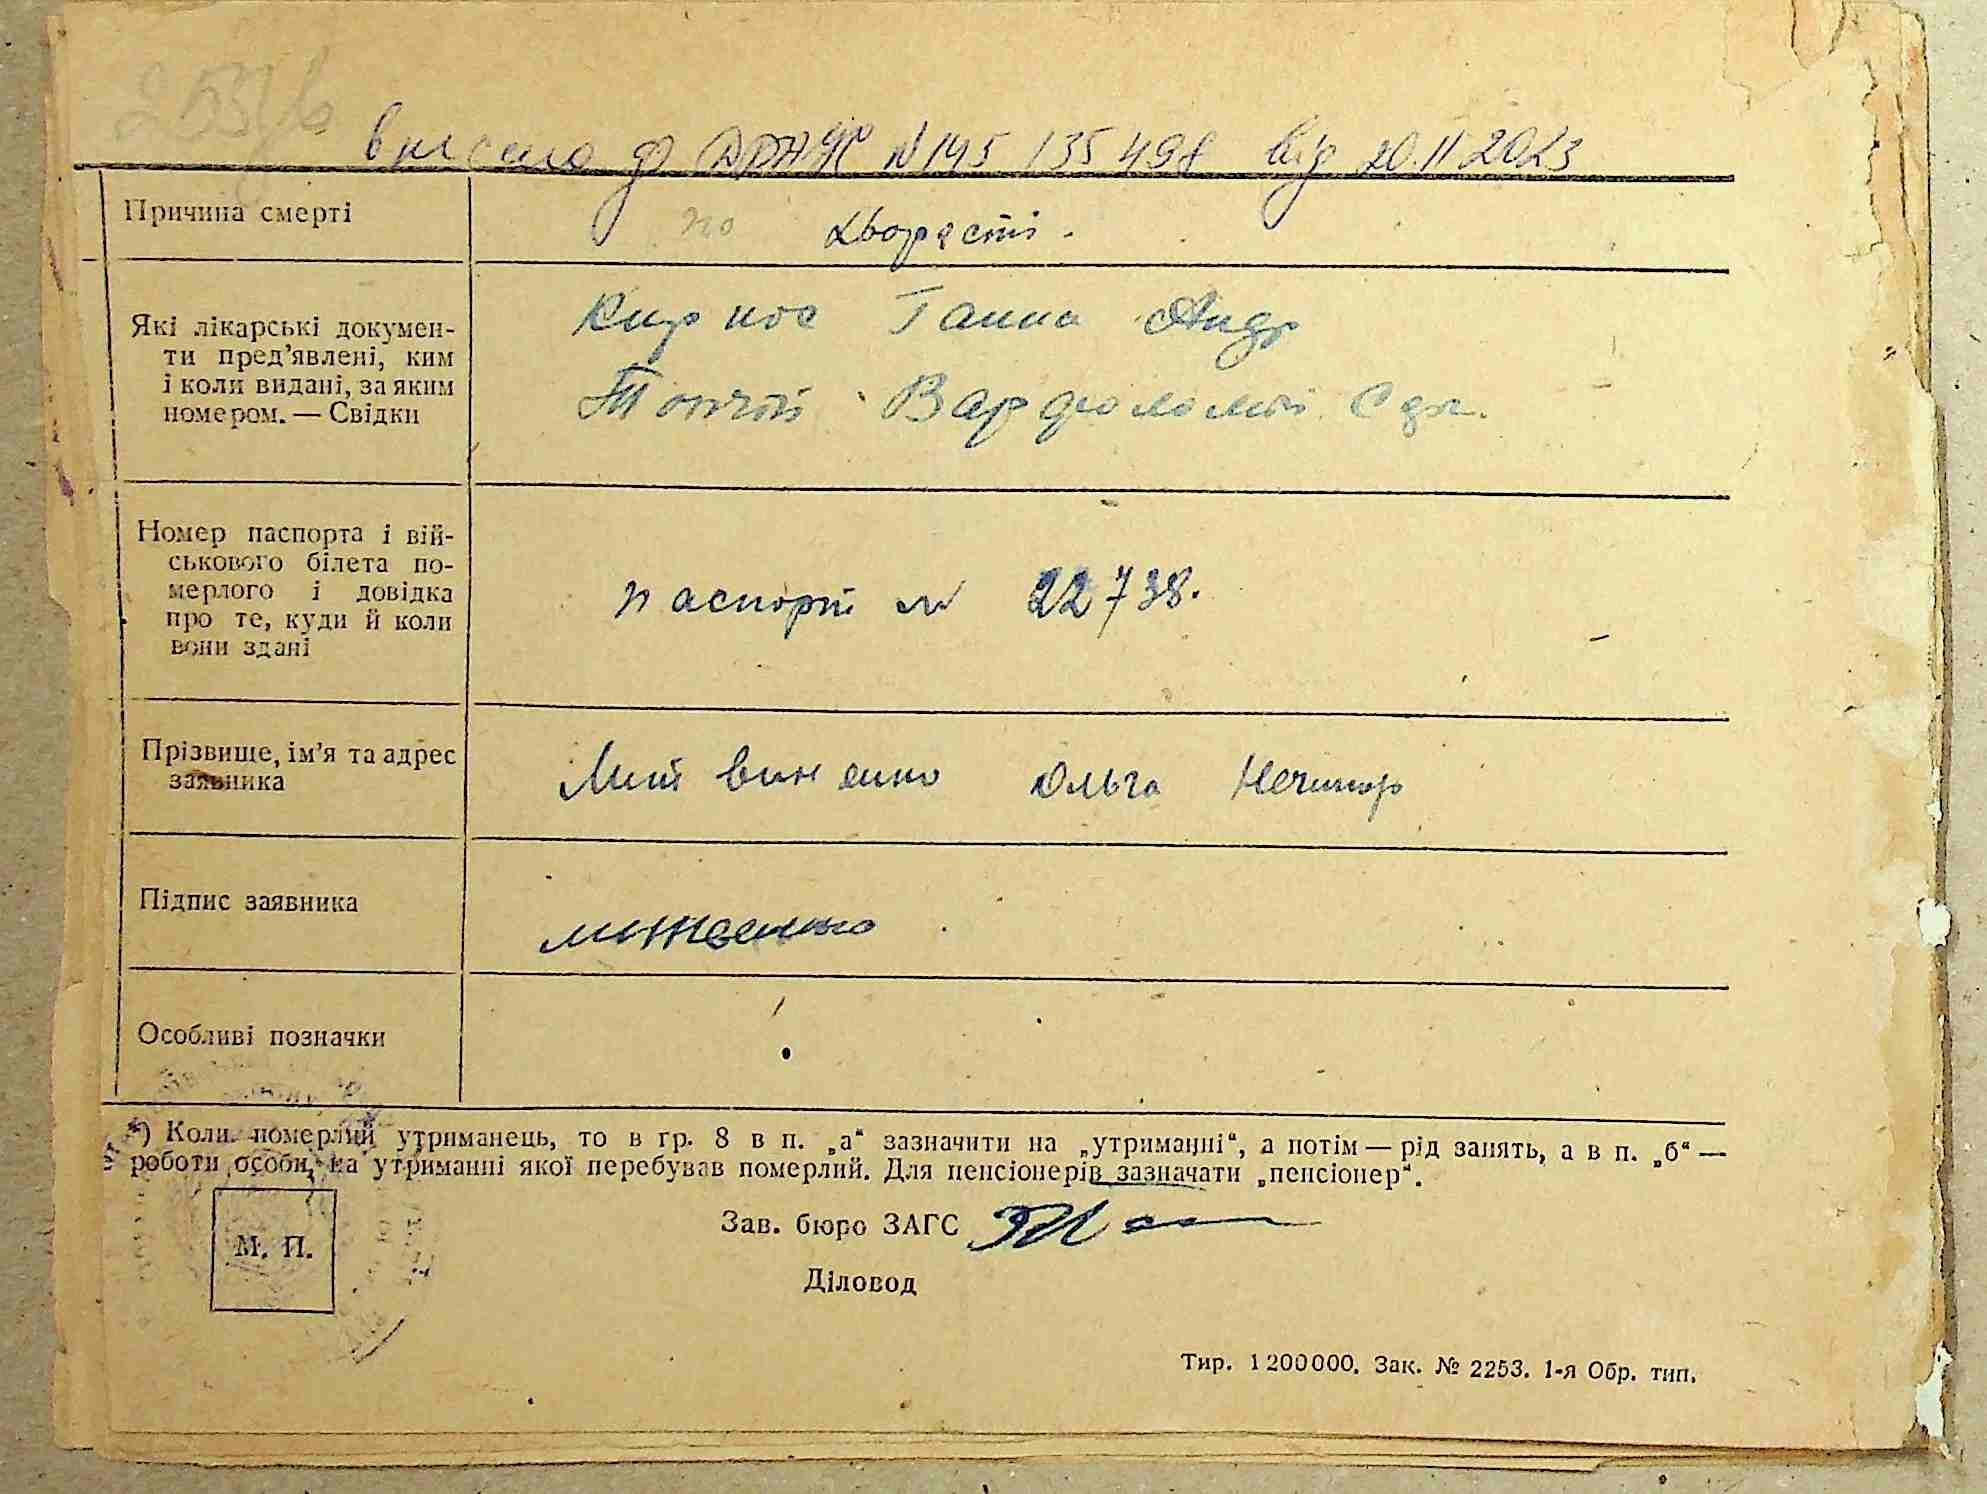 внесено до ДРАЦС №145 135 498 від 20.11.2023
Причина смерті
по хворості.
Які лікарські докумен-
ти пред'явлені, ким
і коли видані, за яким
номером. — Свідки
Кирнос Ганна Андр
Товчій Варфоломей
Номер паспорта і вій-
ськового білета по-
мерлого і довідка
про те, куди й коли
вони здані
паспорт № 22738.
Прізвище, ім'я та адрес
заявника
Литвиненко Ольга Нечипор
Підпис заявника
Особливі позначки
*) Коли померлий утриманець, то в гр. 8 в п. „а“ зазначити на „утриманні“, а потім — рід занять, а в п. „б“ —
роботи особи, на утриманні якої перебував померлий. Для пенсіонерів зазначати „пенсіонер“.
М. П.
Зав. бюро ЗАГС
Діловод
Тир. 1200000. Зак. № 2253. 1-я Обр. тип.